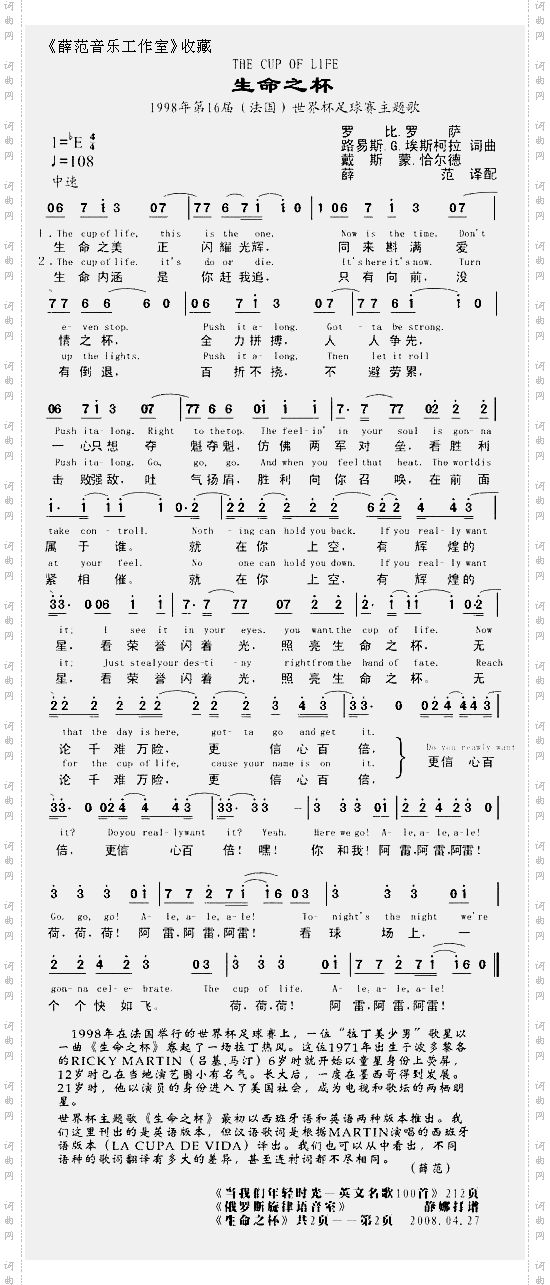 《薛范音乐工作室》收藏
THE CUP OF LIFE
生命之杯
1998年第16届（法国）世界杯足球赛主题歌
罗 比.罗 萨
1=♭E 4/4 路易斯.G.埃斯柯拉 词曲
♩=108 戴 斯 蒙.恰尔德
薛 范 译配
中速
06 7 1 3 07 | 77 67 1 1 0 | 1 06 7 1 3 07 |
1.The cup of life, this is the one, Now is the time. Don't
生 命 之 美 正 闪 耀 光 辉， 同 来 斟 满 爱
2.The cup of life. it's do or die. It's here it's now. Turn
生 命 内 涵 是 你 赶 我 追， 只 有 向 前， 没
77 6 6 6 0 | 06 7 1 3 07 | 77 61 1 1 0 |
e- ven stop. Push it a- long. Got - ta be strong.
情 之 杯， 全 力 拼 搏， 人 人 争 先，
up the lights. Push it a- long, Then let it roll
有 倒 退， 百 折 不 挠， 不 避 劳 累，
06 7 1 3 07 | 77 66 01 1 1 | 7· 7 77 02 2 2 |
Push ita- long. Right to thetop. The feel-in' in your soul is gon-na
一 心只 想 夺 魁 夺 魁， 仿 佛 两 军 对 垒， 看 胜 利
Push ita- long. Go, go, go. And when you feel that heat. The worldis
击 败强 敌， 吐 气 扬 眉， 胜 利 向 你 召 唤， 在 前 面
1· 1 11 1 0·2 | 22 2 2 2 2 622 4 43 |
take con - troll. Noth - ing can hold you back. If you real- ly want
属 于 谁。 就 在 你 上 空， 有 辉 煌 的
at your feel. No one can hold you down. If you real- ly want
紧 相 催。 就 在 你 上 空， 有 辉 煌 的
33· 0 06 1 1 | 7· 7 77 07 2 2 | 2· 1 11 1 0·2 |
it; I see it in your eyes. you want the cup of life. Now
星， 看 荣 誉 闪 着 光， 照 亮 生 命 之 杯， 无
it; Just steal your des-ti - ny right from the hand of fate. Reach
星， 看 荣 誉 闪 着 光， 照 亮 生 命 之 杯。 无
22 2 22 2 2 2 2 43 | 33· 0 024 443 |
that the day is here, got- ta go and get it.
论 千 难 万 险， 更 信 心 百 倍，
Do you reawly want
for the cup of life, cause your name is on it.
更信 心百
论 千 难 万 险， 更 信 心 百 倍，
33· 0 024 4 43 | 33· 33 － | 3 3 3 01 | 2 2 4 23 0 |
it? Doyou real-lywant it? Yeah. Here we go! A- le, a- le, a-le!
倍， 更信 心百 倍！ 嘿！ 你 和 我！ 阿 雷，阿 雷，阿雷！
3 3 3 01 | 7 7 2 71 16 03 | 3 3 3 01 |
Go. go, go! A- le, a- le, a-le! To- night's the night we're
荷，荷，荷！ 阿 雷，阿 雷，阿雷！ 看 球 场 上， 一
2 2 4 2 3 03 | 3 3 3 01 | 7 7 2 71 16 0 ‖
gon-na cel-e- brate. The cup of life. A- le, a- le, a-le!
个 个 快 如 飞。 荷，荷，荷！ 阿 雷，阿 雷，阿雷！
1998年在法国举行的世界杯足球赛上，一位“拉丁美少男”歌星以
一曲《生命之杯》卷起了一场拉丁热风。这位1971年出生于波多黎各
的RICKY MARTIN（吕基.马汀）6岁时就开始以童星身份上荧屏，
12岁时已在当地演艺圈小有名气。长大后，一度在墨西哥得到发展。
21岁时，他以演员的身份进入了美国社会，成为电视和歌坛的两栖明
星。
世界杯主题歌《生命之杯》最初以西班牙语和英语两种版本推出。我
们这里刊出的是英语版本，但汉语歌词是根据MARTIN演唱的西班牙
语版本（LA CUPA DE VIDA）译出。我们也可以从中看出，不同
语种的歌词翻译有多大的差异，甚至连衬词都不尽相同。
（薛 范）
《当我们年轻时光－英文名歌100首》212页
《俄罗斯旋律语音室》 静娜打谱
《生命之杯》共2页－－第2页 2008.04.27